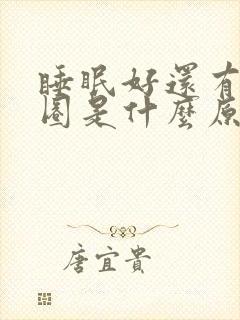 睡眠好還有
圈是什麼原
唐宜貴